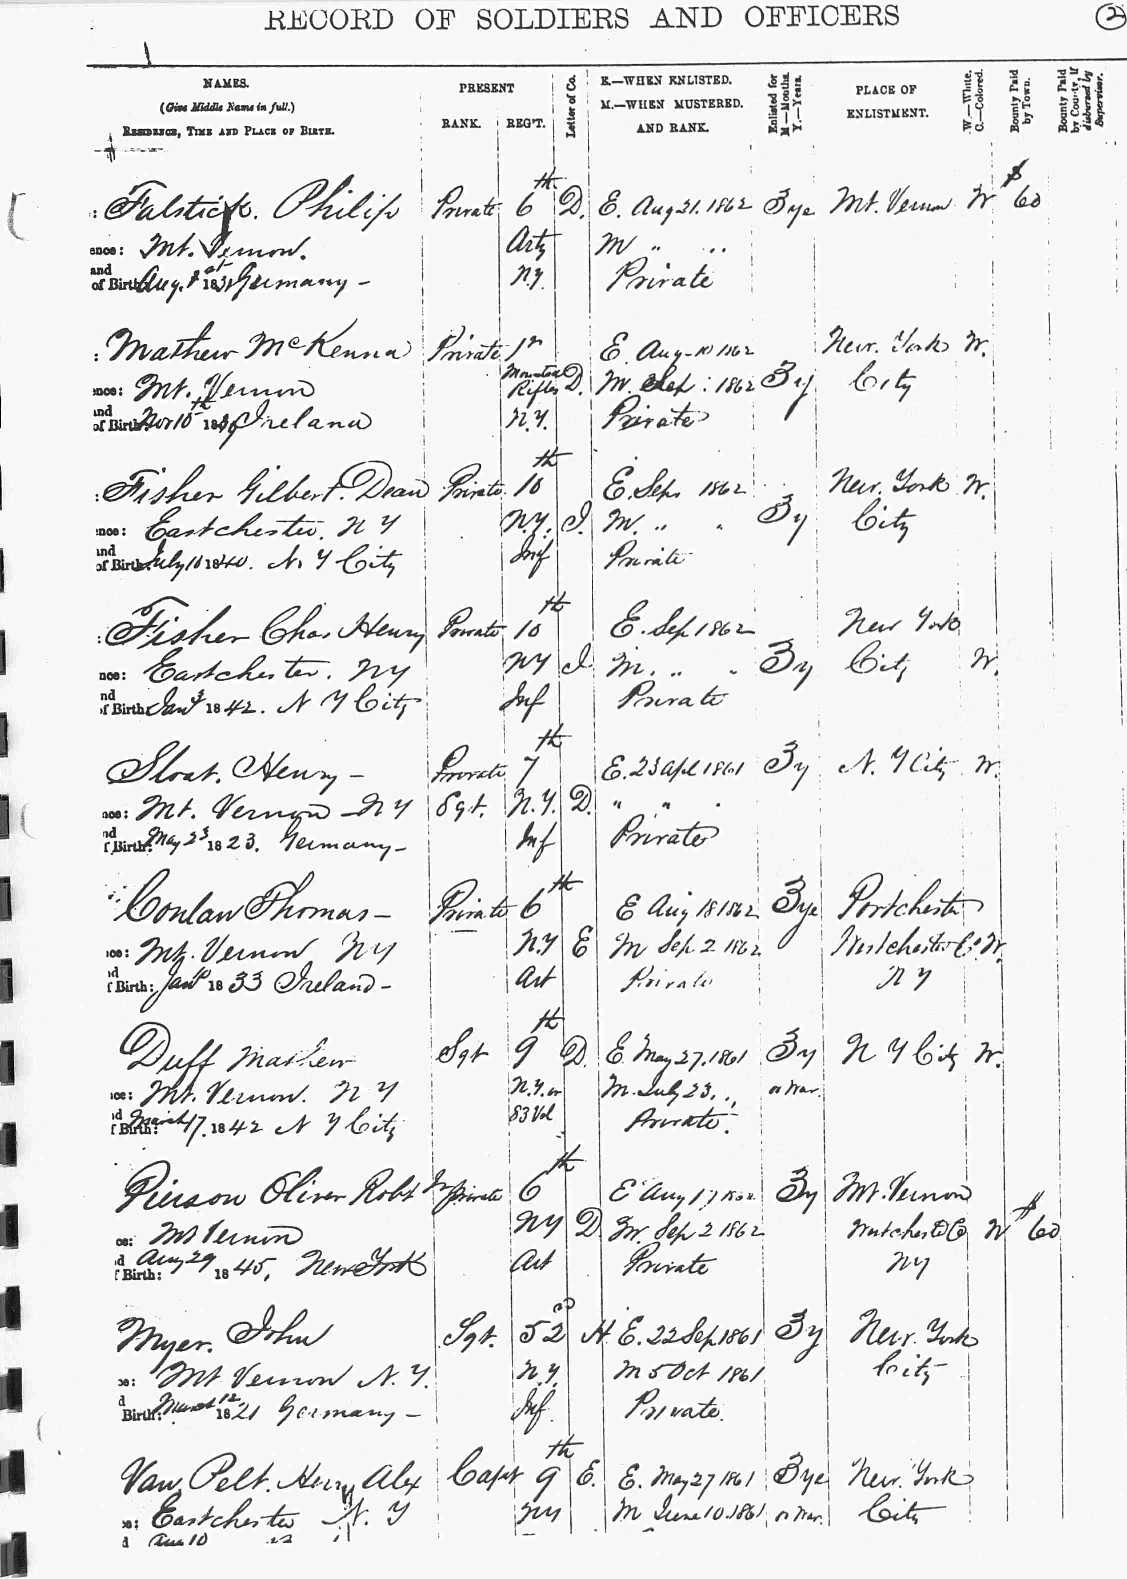 RECORD OF SOLDIERS AND OFFICERS 2
NAMES. PRESENT Letter of Co. E.—WHEN ENLISTED. Enlisted for M—Months. Y.—Years. PLACE OF W.—White. C.—Colored. Bounty Paid by Town. Bounty Paid by County, if disbursed by Supervisor.
(Give Middle Name in full.) M.—WHEN MUSTERED. ENLISTMENT.
RESIDENCE, TIME AND PLACE OF BIRTH. RANK. REG'T. AND RANK.
Philip Private 6th D. E. Aug 21. 1862 3 ye Mt. Vernon W $60
ence: Mt. Vernon. Arty M " "
and of Birth: Aug. 1st 183 Germany – N.Y. Private
Mathew McKenna Private 1st E. Aug 1862 New York W.
ence: Mt. Vernon Mounted Rifles D. M. Sep: 1862 3 y City
and of Birth: Nov 15th 18 Ireland N.Y. Private
Fisher Gilbert. Dean Private 10th E. Sep 1862 New York W.
nce: Eastchester. N Y N.Y. I. M. " " 3 y City
and of Birth: July 10 1840. N. Y City Inf Private
Fisher Chas Henry Private 10th E. Sep 1862 New York
nce: Eastchester. NY NY I. M. " " 3 y City W.
nd of Birth: Jan 3 1842. N Y City Inf Private
Sloat. Henry – Private 7th E. 23 Apl 1861 3 y N. Y City W.
nce: Mt. Vernon – N Y Sgt. N.Y. D. " "
nd f Birth: May 23 1823. Germany – Inf Private
Conlan Thomas – Private 6th E Aug 18 1862 3 ye Portchester
ce: Mt. Vernon NY N.Y E M Sep 2 1862 Westchester Co W.
d f Birth: Jany 1833 Ireland – Art Private N Y
Duff Mathew Sgt 9th D. E. May 27. 1861 3 y N Y City W.
ce: Mt. Vernon. N Y N.Y. or M. July 23. " or War.
d f Birth: March 17. 1842 N Y City 83 Vol Private.
Pierson Oliver Robt Jr Private 6th E Aug 3 y Mt. Vernon
ce: Mt Vernon NY D. M. Sep 2 1862 Westchester Co W $60
d f Birth: Aug 29 1845, New York Art Private NY
Myer. John Sgt. 52 H. E. 22 Sep 1861 3 y New York
e: Mt Vernon N. Y. N.Y. M 5 Oct 1861 City
d Birth: March 12 1821 Germany – Inf. Private.
Van Pelt. Henry Alex Capt 9th E. E. May 27 1861 3 ye New York
e: Eastchester N. Y NY M June 10. 1861 or War. City
d 10